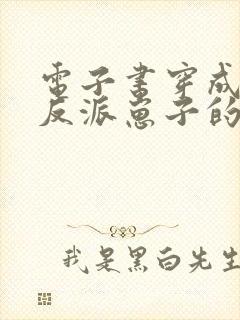 電子書穿成
反派崽子的
我是黑白先生